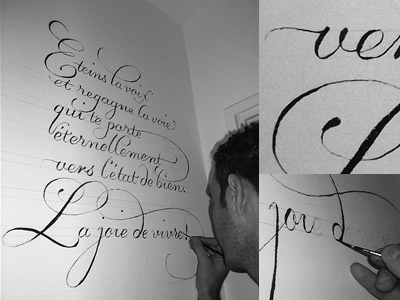 Eteins la voix
et regagne la voie
qui te porte
éternellement
vers l'état de bien.
La joie de vivre!
ver
joie d